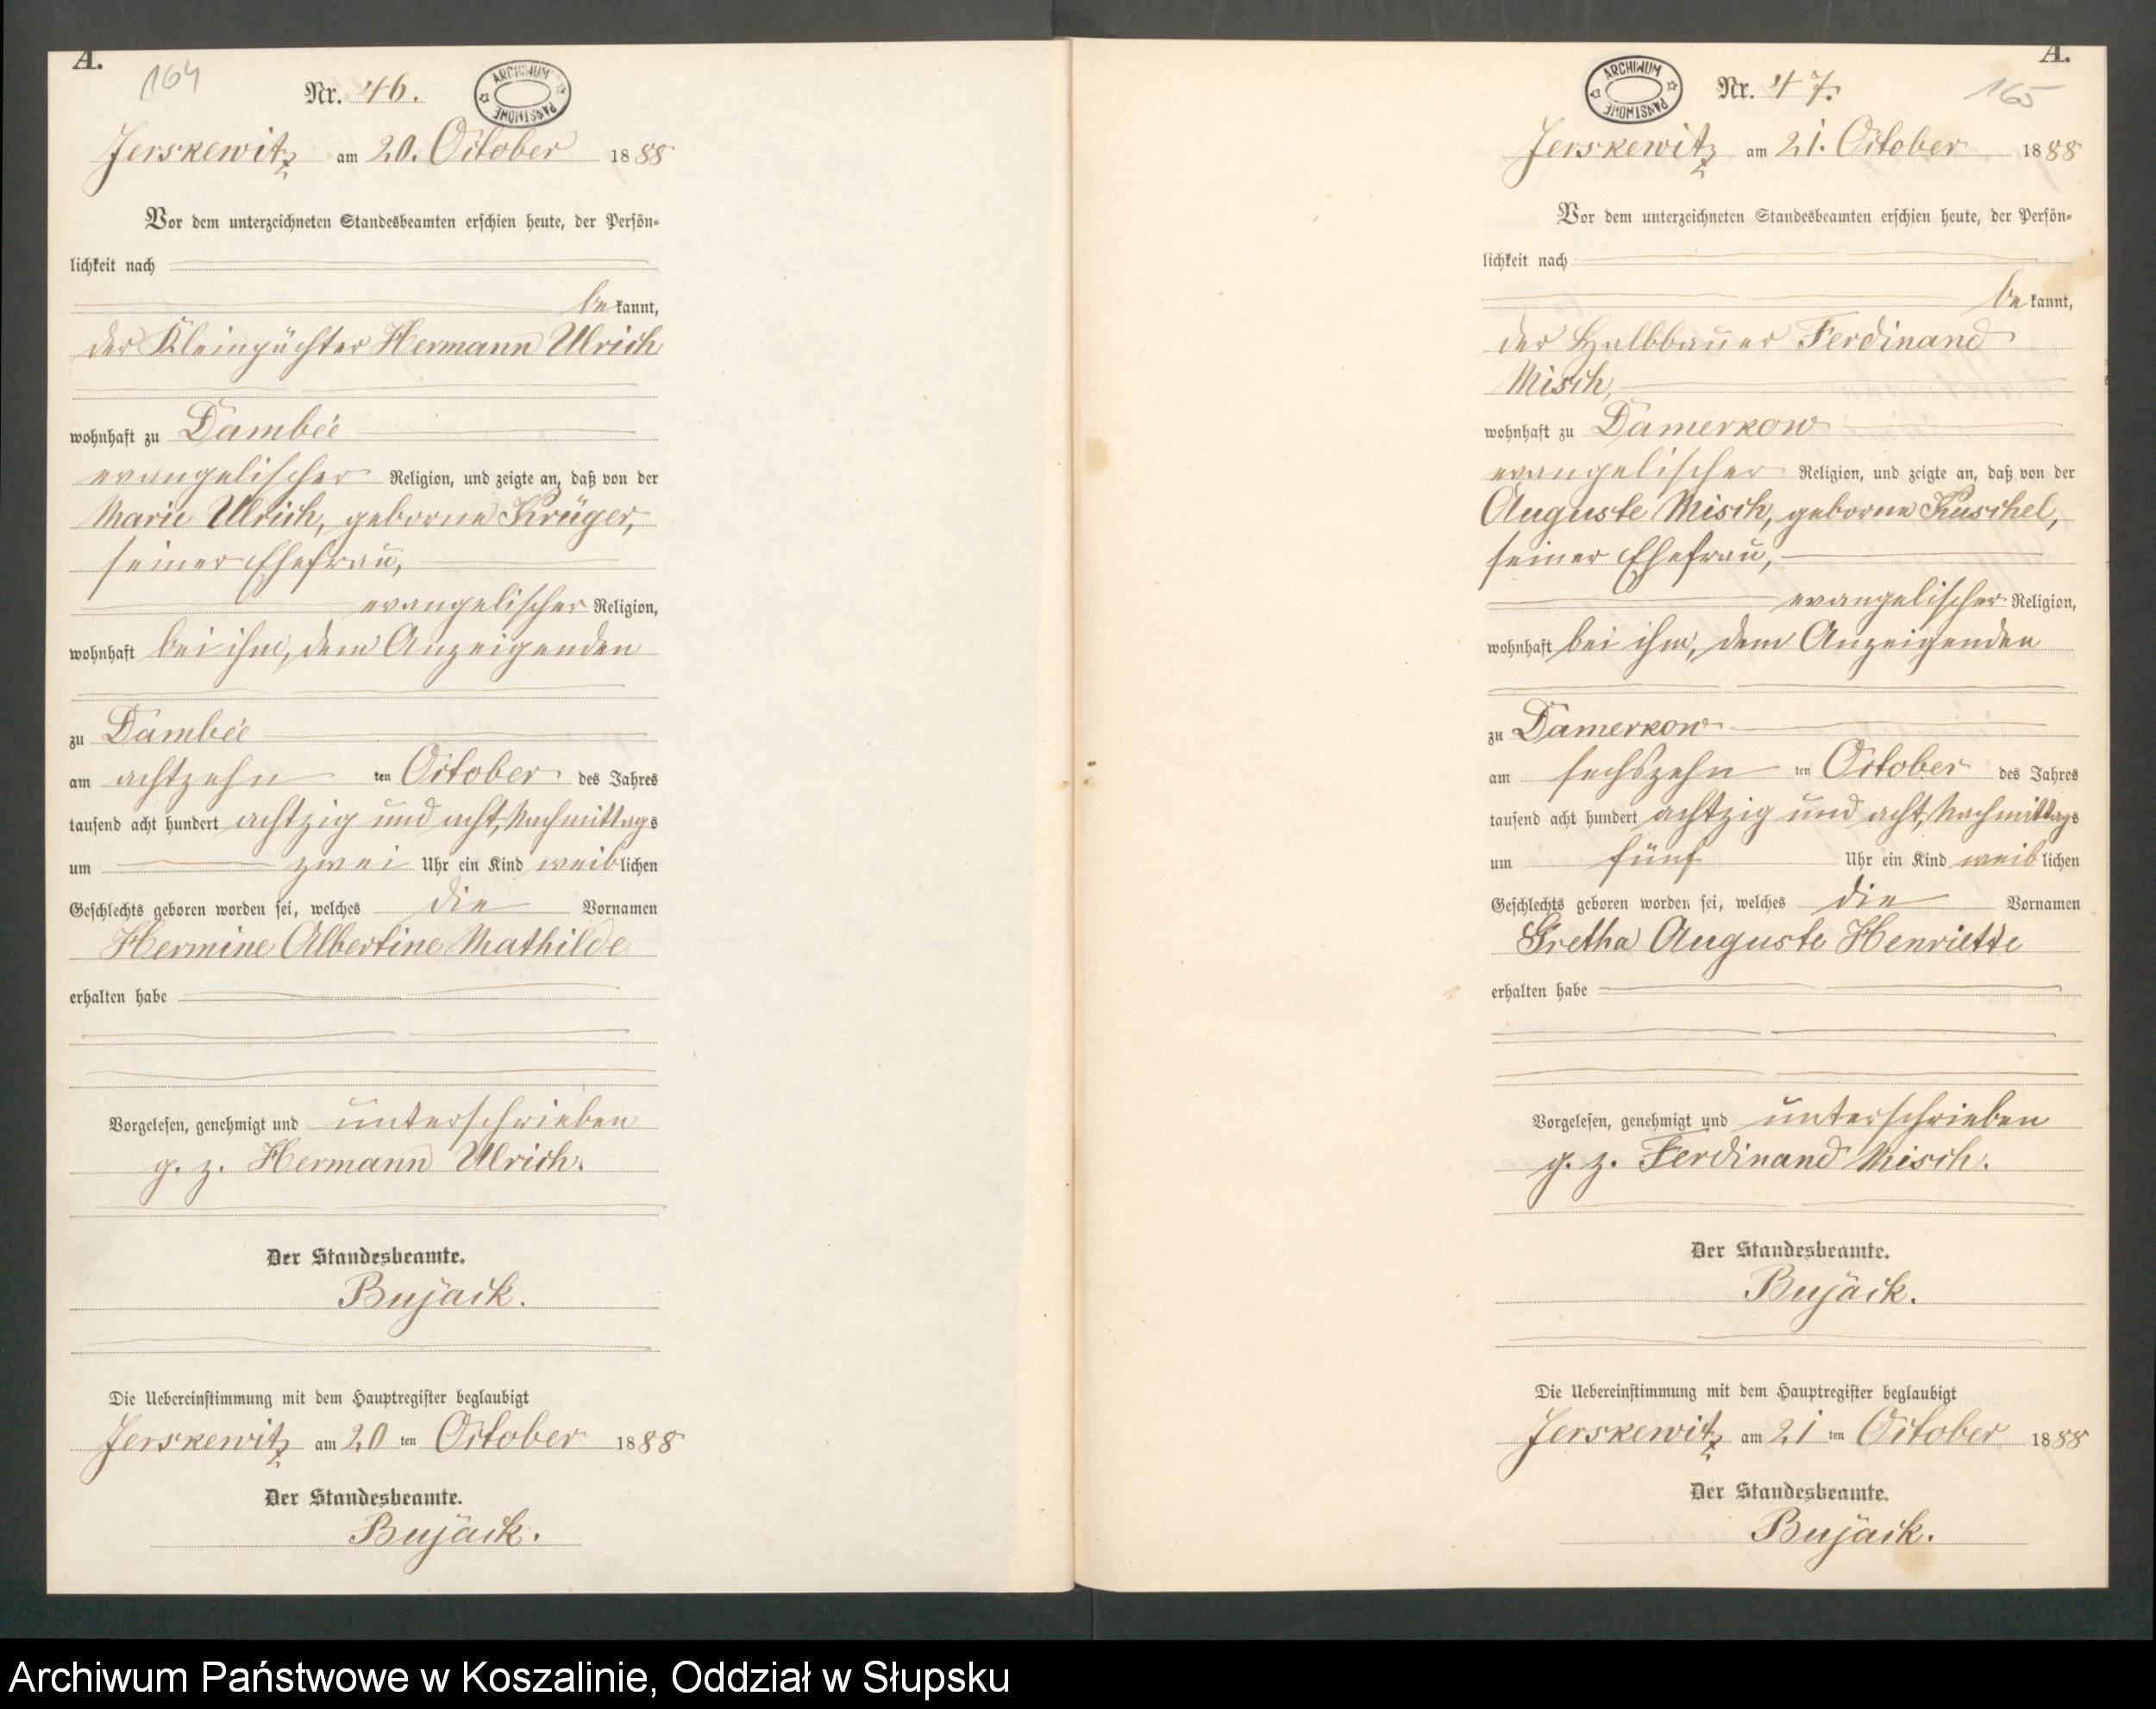 A.
164
Nr. 46.
ARCHIWUM PAŃSTWOWE
Jerskewitz am 20. October 1888
Vor dem unterzeichneten Standesbeamten erschien heute, der Persön-
lichkeit nach
bekannt,
der Kleinpächter Hermann Ulrich
wohnhaft zu Dambée
evangelischer Religion, und zeigte an, daß von der
Marie Ulrich, geborne Krüger,
seiner Ehefrau,
evangelischer Religion,
wohnhaft bei ihm, dem Anzeigenden
zu Dambée
am achtzehn ten October des Jahres
tausend acht hundert achtzig und acht, Nachmittags
um zwei Uhr ein Kind weiblichen
Geschlechts geboren worden sei, welches die Vornamen
Hermine Albertine Mathilde
erhalten habe
Vorgelesen, genehmigt und unterschrieben
g. z. Hermann Ulrich.
Der Standesbeamte.
Bujack.
Die Uebereinstimmung mit dem Hauptregister beglaubigt
Jerskewitz am 20 ten October 1888
Der Standesbeamte.
Bujack.
A.
165
ARCHIWUM PAŃSTWOWE
Nr. 47.
Jerskewitz am 21. October 1888
Vor dem unterzeichneten Standesbeamten erschien heute, der Persön-
lichkeit nach
bekannt,
der Halbbauer Ferdinand
Misch,
wohnhaft zu Damerkow
evangelischer Religion, und zeigte an, daß von der
Auguste Misch, geborne Kuschel,
seiner Ehefrau,
evangelischer Religion,
wohnhaft bei ihm, dem Anzeigenden
zu Damerkow
am sechszehn ten October des Jahres
tausend acht hundert achtzig und acht, Nachmittags
um fünf Uhr ein Kind weiblichen
Geschlechts geboren worden sei, welches die Vornamen
Gretha Auguste Henriette
erhalten habe
Vorgelesen, genehmigt und unterschrieben
g. z. Ferdinand Misch.
Der Standesbeamte.
Bujack.
Die Uebereinstimmung mit dem Hauptregister beglaubigt
Jerskewitz am 21 ten October 1888
Der Standesbeamte.
Bujack.
Archiwum Państwowe w Koszalinie, Oddział w Słupsku